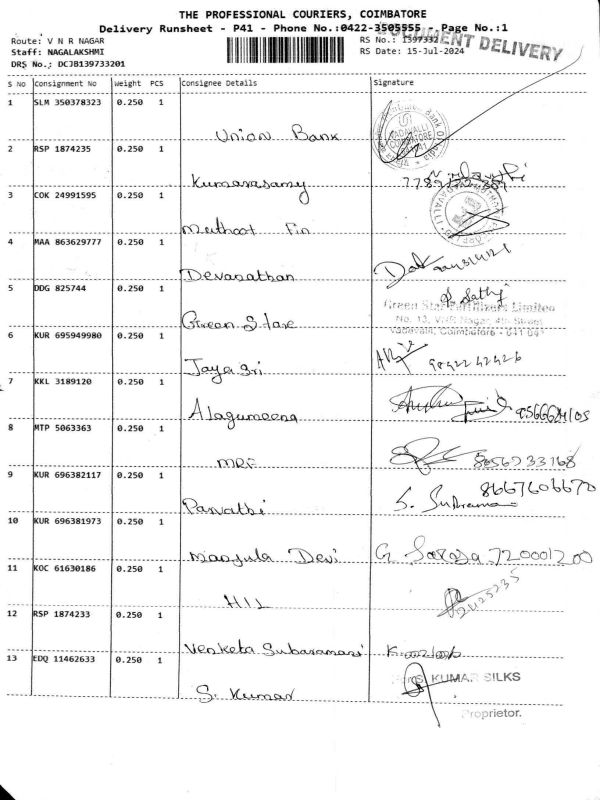 THE PROFESSIONAL COURIERS, COIMBATORE
Delivery Runsheet - P41 - Phone No.:0422-3505555 - Page No.:1
Route: V N R NAGAR
RS No.: 1597332
DOCUMENT DELIVERY
Staff: NAGALAKSHMI
RS Date: 15-Jul-2024
DRS No.; DCJB139733201
S No Consignment No Weight PCS Consignee Details Signature
1 SLM 350378323 0.250 1
Union Bank
2 RSP 1874235 0.250 1
Kumarasamy
3 COK 24991595 0.250 1
Muthoot Fin
4 MAA 863629777 0.250 1
Devanathan
5 DDG 825744 0.250 1
Green Stare
Green Star Fertilizers Limited
No. 13, VNR Nagar, 4th Street
Vadavalli, Coimbatore - 641 041
6 KUR 695949980 0.250 1
Jaya Sri 9842242426
7 KKL 3189120 0.250 1
Alagumeena
8 MTP 5063363 0.250 1
MRF 8056733168
9 KUR 696382117 0.250 1
8667606670
Parvathi
10 KUR 696381973 0.250 1
Manjula Devi G Saroja 720001200
11 KOC 61630186 0.250 1
HIL
12 RSP 1874233 0.250 1
Venketa Subaramani
13 EDQ 11462633 0.250 1
For S. KUMAR SILKS
S. Kumar
Proprietor.